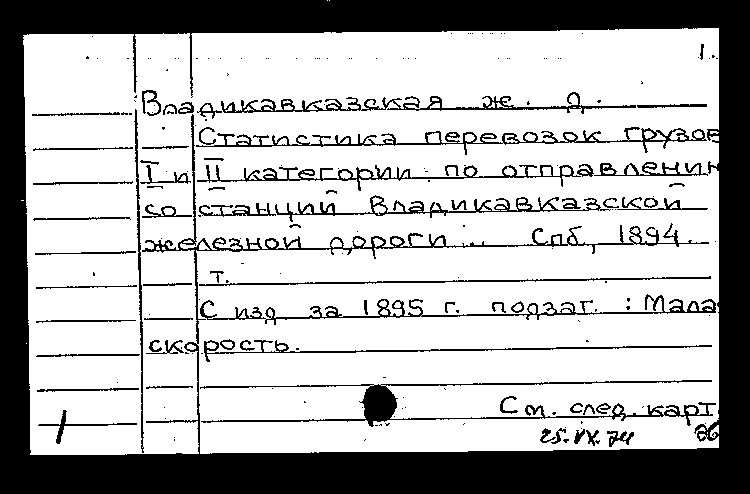 1.
Владикавказская ж. д.
Статистика перевозок грузов
I и II категории по отправлению
со станций Владикавказской
железной дороги .. Спб, 1894.
т.
С изд за 1895 г. подзаг. : Мала
скорость.
См. след. карт
1 25.IX.74